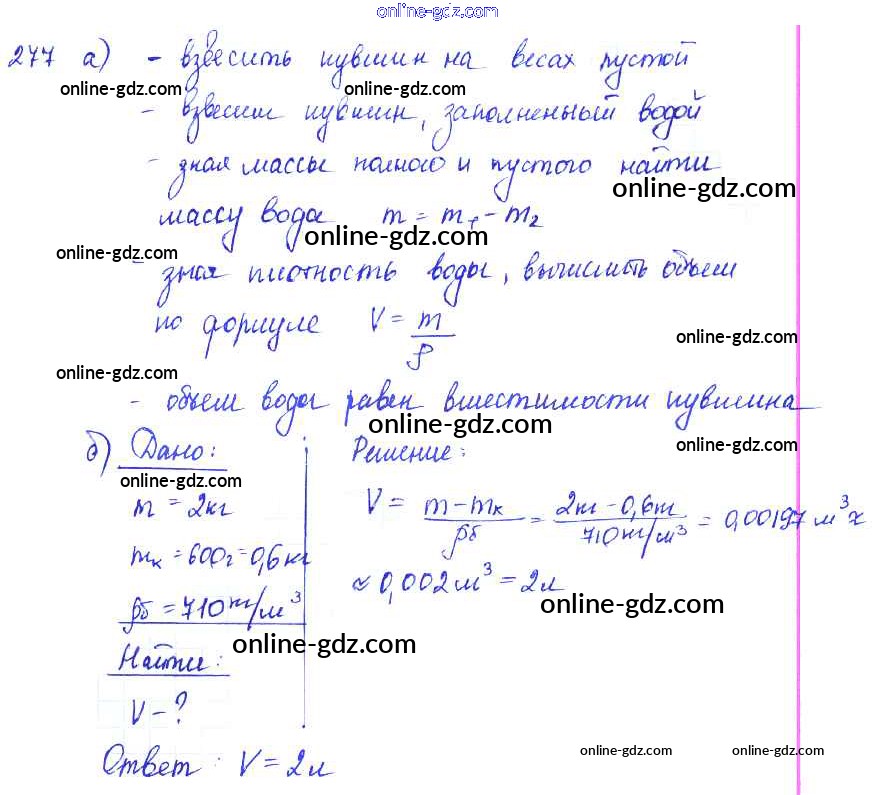 online-gdz.com
277 а) - взвесить кувшин на весах пустой
online-gdz.com online-gdz.com
- взвесим кувшин, заполненный водой
- зная массы полного и пустого найти
online-gdz.com
массу воды m = m₁ - m₂
online-gdz.com
online-gdz.com
- зная плотность воды, вычислить объем
по формуле V = m/ρ
online-gdz.com
online-gdz.com
- объем воды равен вместимости кувшина
online-gdz.com
б) Дано: Решение:
online-gdz.com
online-gdz.com
m = 2кг
V = (m-mк)/ρб = (2кг-0,6кг)/(710кг/м³) = 0,00197м³ ≈
mк = 600г = 0,6кг
≈ 0,002м³ = 2л
ρб = 710кг/м³
online-gdz.com
online-gdz.com
Найти:
V - ?
Ответ: V = 2л
online-gdz.com online-gdz.com